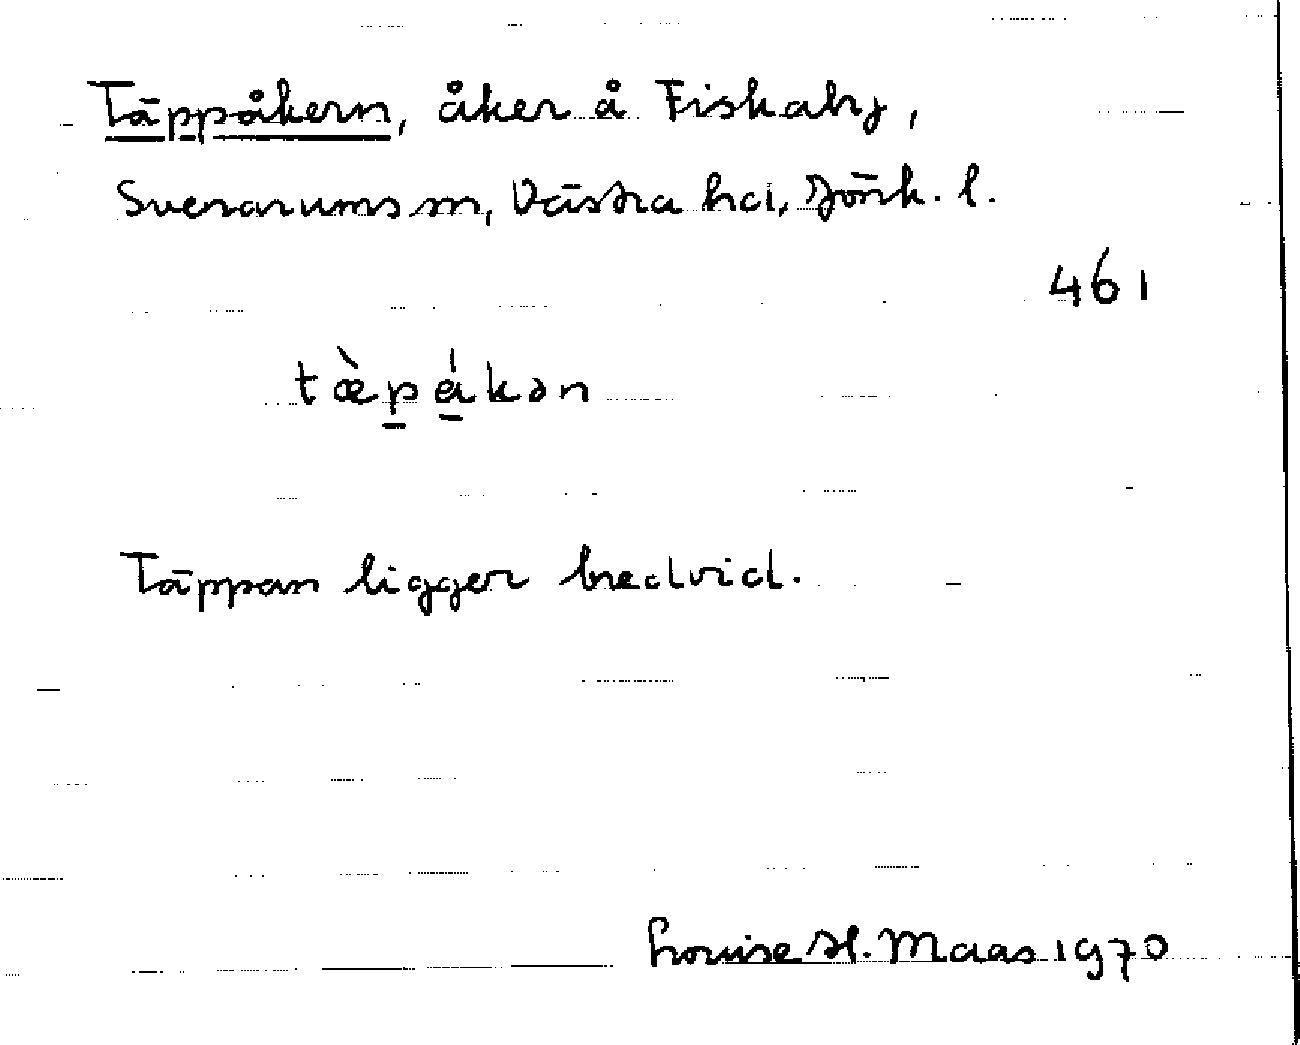 Täppåkern, åker å Fiskaby,
Svenarums sn, Västra hd, Jönk. l.
461
tæ̀p̠ǻ̠kən
Täppan ligger bredvid.
Louise H. Maas 1970